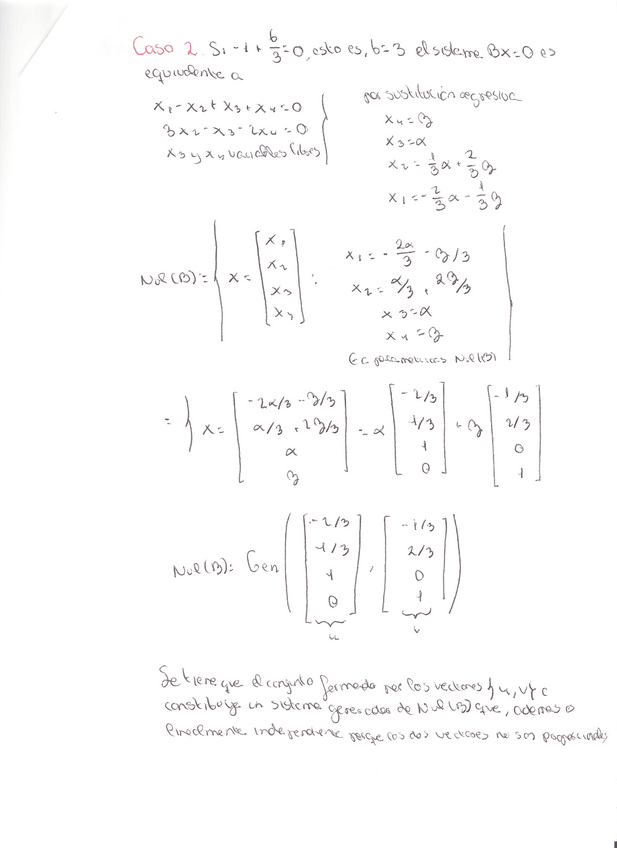 Caso 2. Si -1 + b/3 = 0, esto es, b = 3 el sistema Bx = 0 es
equivalente a
x₁ - x₂ + x₃ + x₄ = 0
3x₂ - x₃ - 2x₄ = 0
x₃ y x₄ variables libres
por sustitución regresiva
x₄ = β
x₃ = α
x₂ = 1/3 α + 2/3 β
x₁ = -2/3 α - 1/3 β
Nul(B) = { x = [x₁ x₂ x₃ x₄] :
x₁ = -2α/3 - β/3
x₂ = α/3 + 2β/3
x₃ = α
x₄ = β
Ec parametricas Nul(B)
= { x = [-2α/3 - β/3, α/3 + 2β/3, α, β] = α [-2/3, 1/3, 1, 0] + β [-1/3, 2/3, 0, 1]
Nul(B) = Gen ( [-2/3, 1/3, 1, 0], [-1/3, 2/3, 0, 1] )
u v
Se tiene que el conjunto formado por los vectores {u, v} c
constituye un sistema generador de Nul(B) que, además es
linealmente independiente porque los dos vectores no son proporcionales